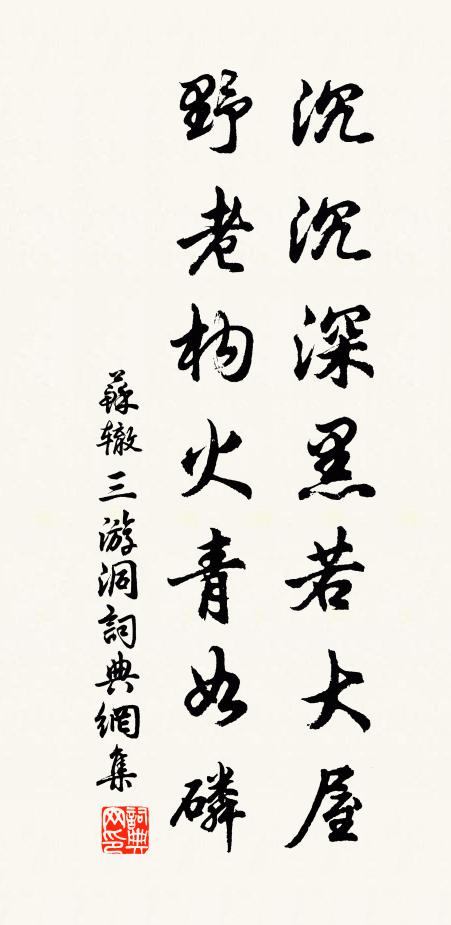 沉沉深黑若大屋
野老构火青如磷
蘇辙三游洞詞典網集
詞典网印